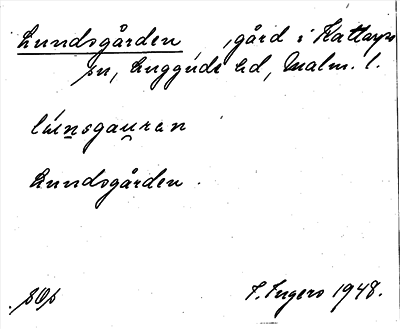 Lundsgården, gård i Kattarps
sn, Luggude hd, Malm. l.
lúnsgauran
Lundsgården.
F. Ingers 1948.